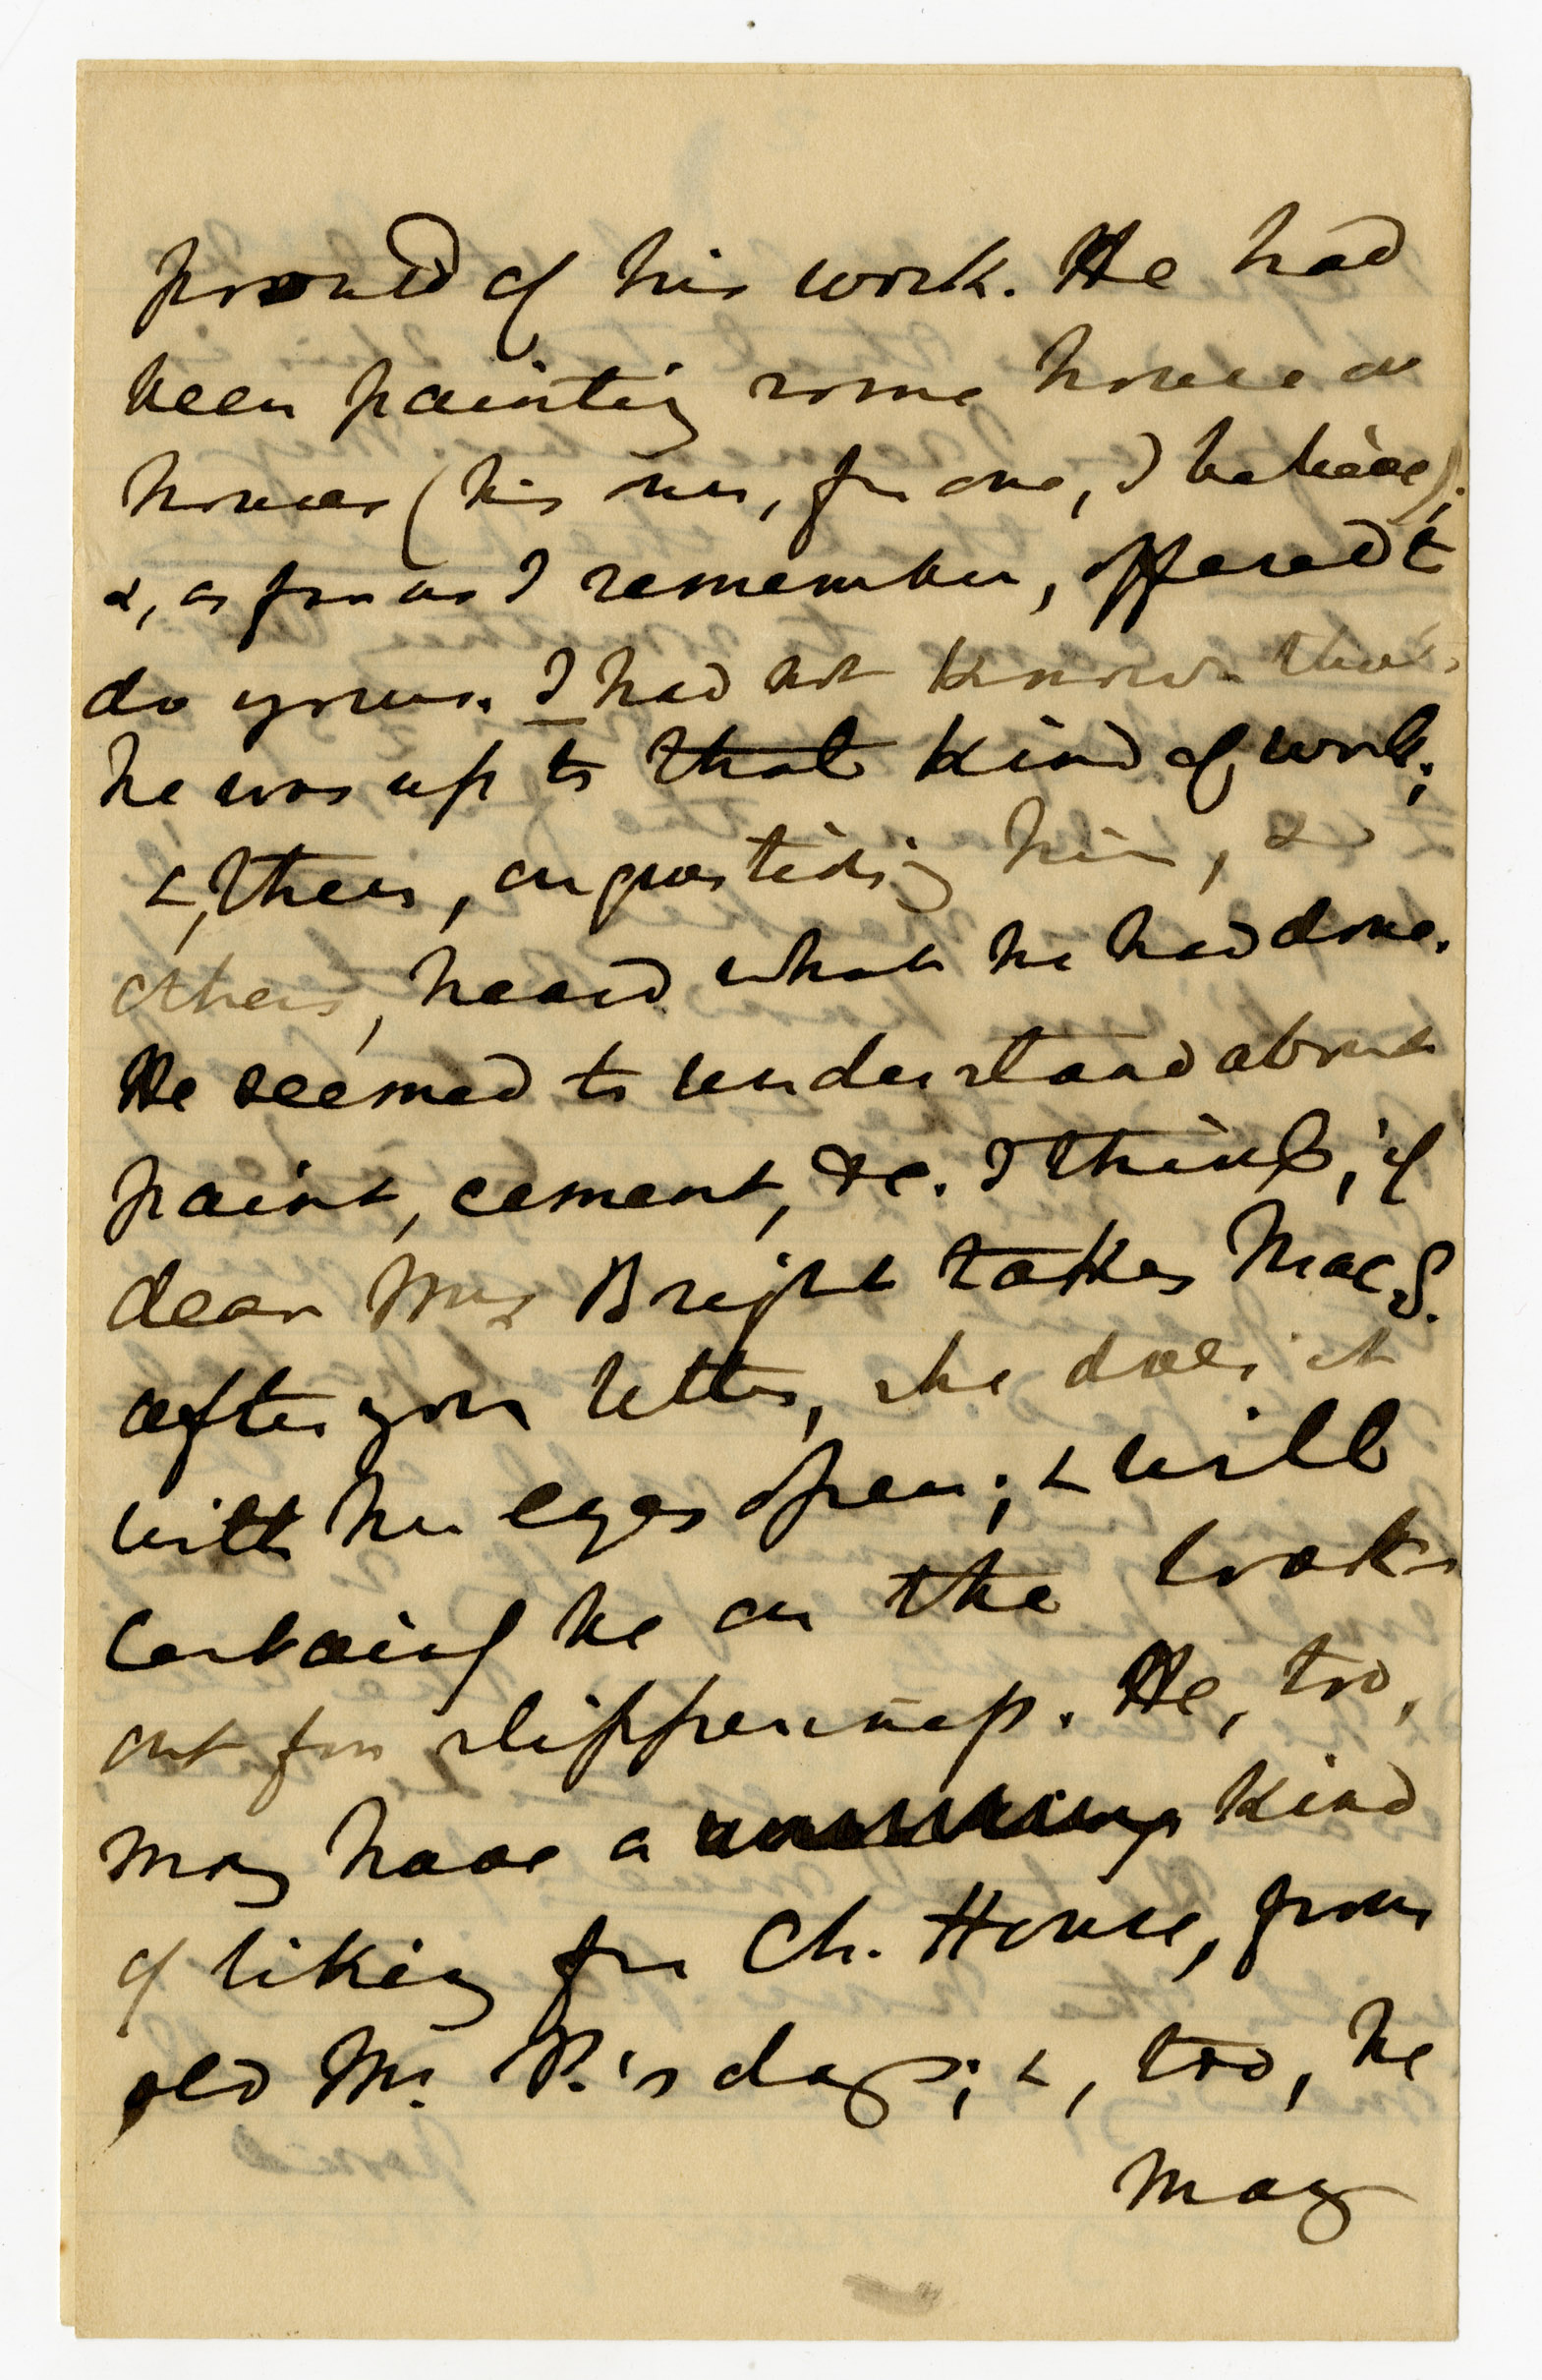 proud of his work. He had
been painting some house or
houses (his own, for one, I believe);
&, as far as I remember, offered to
do yours. I had not known that
he was up to that kind of work;
&, then, on questioning him, &
others, heard what he had done.
He seemed to understand about
paint, cement, &c. I think, if
dear Mrs Bright takes MacS.
after your letter, she does it
with her eyes open; & will
certainly be on the look-
out for slipperiness. He, too,
may have a kind
of liking for Ch. House, from
old Mr. P.'s days; &, too, he
may